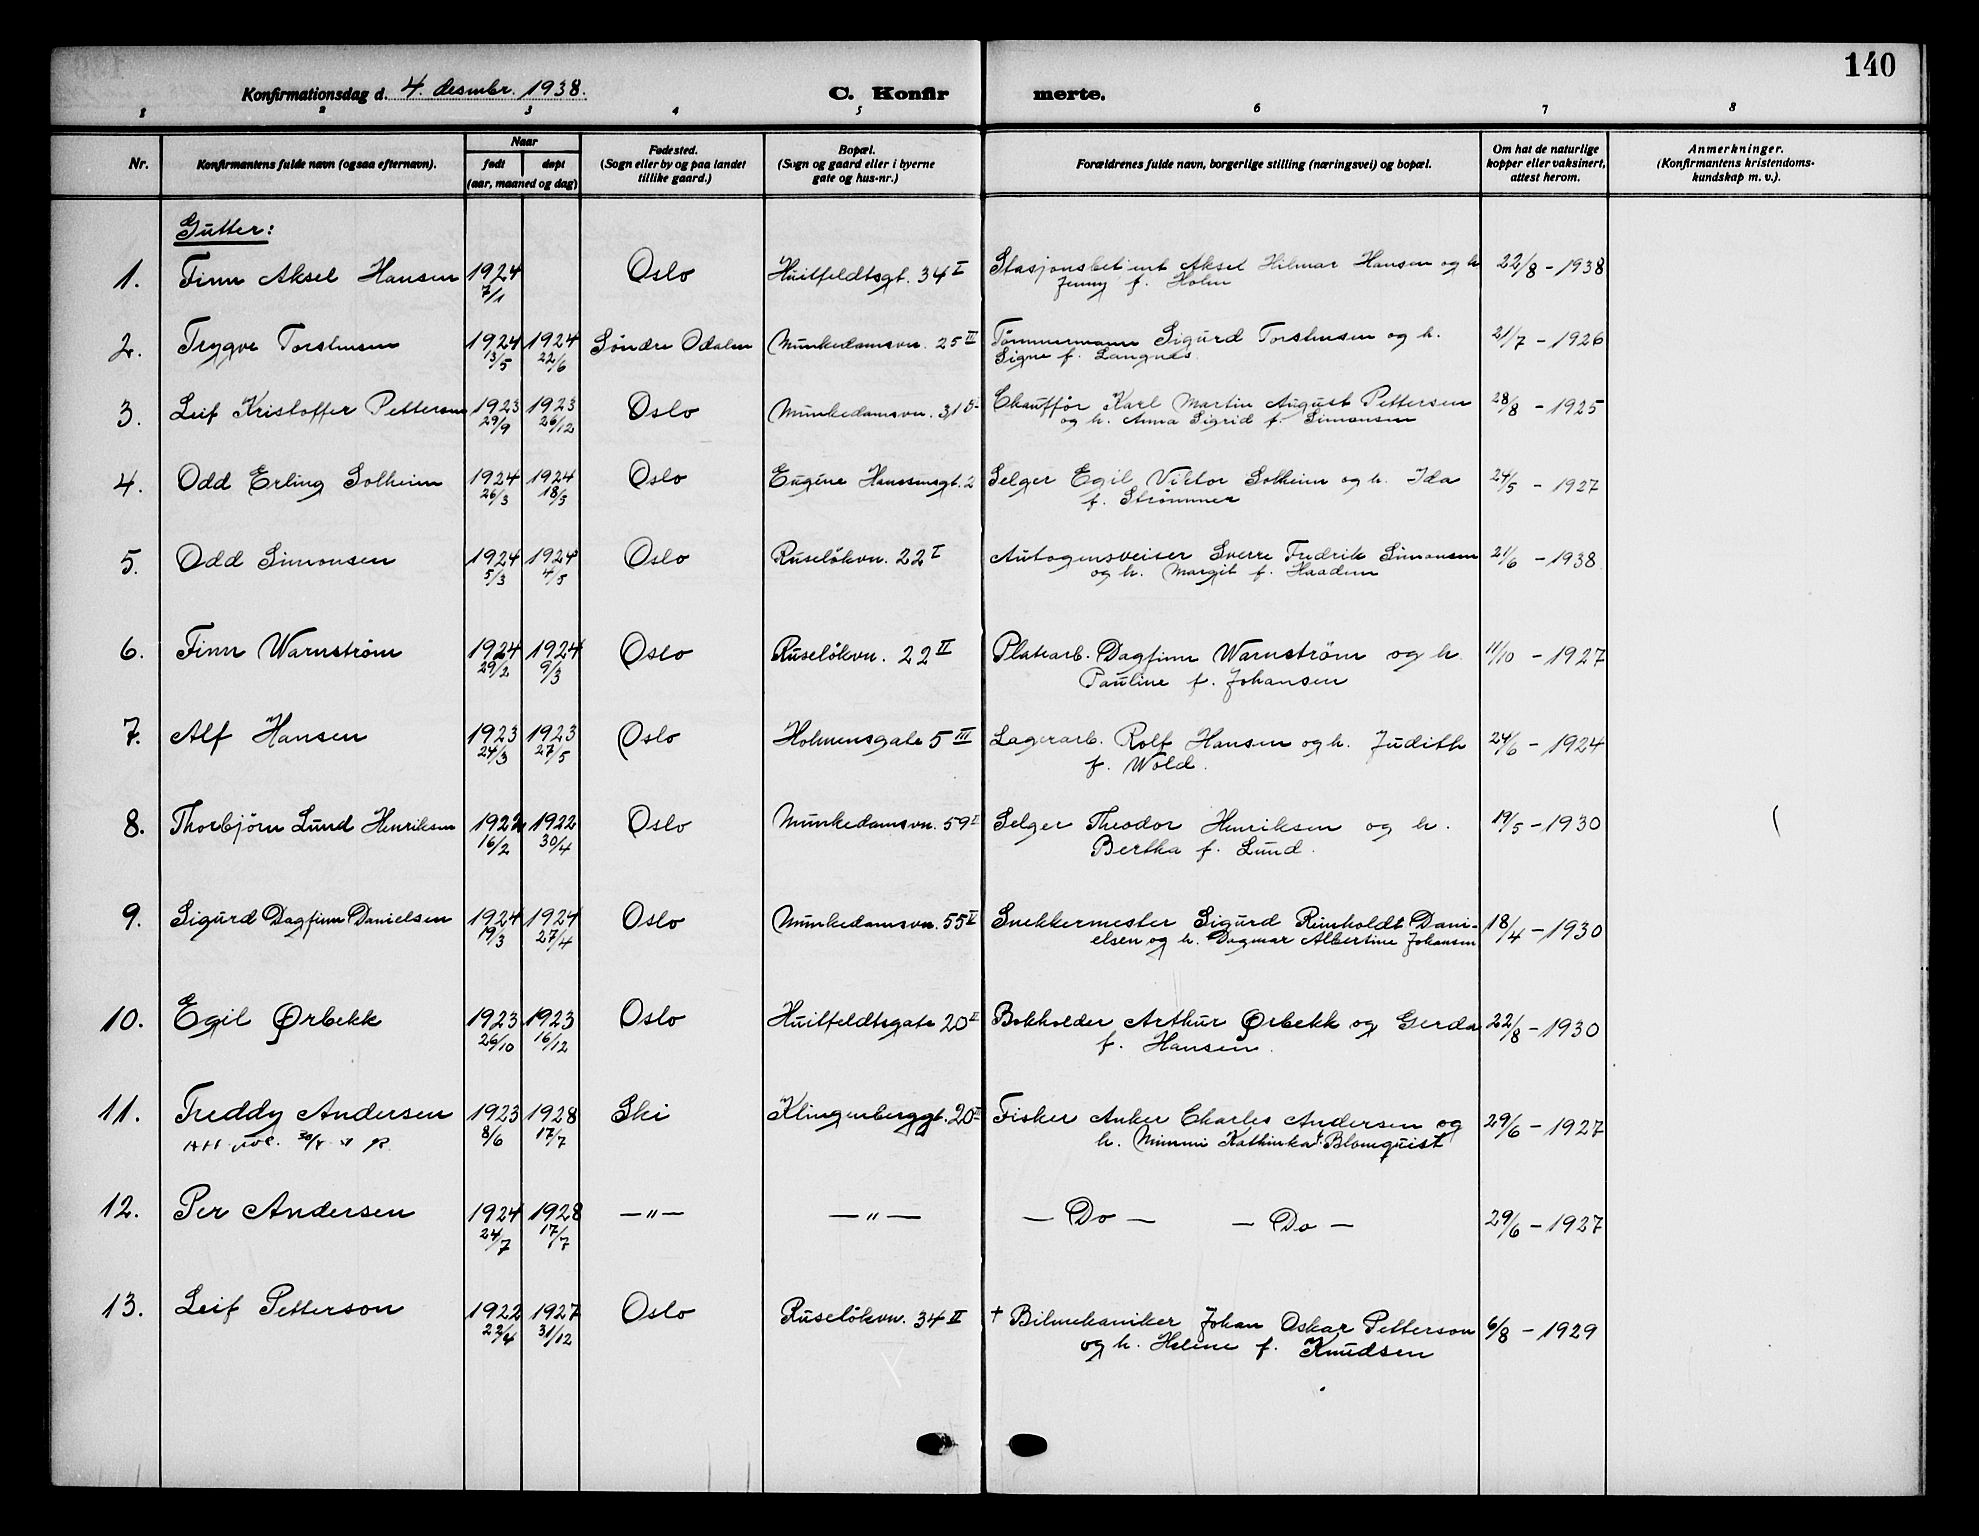 140
Konfirmationsdag d. 4. desembr. 1938.
C. Konfir merte.
1 2 3 4 5 6 7 8
Nr.
Konfirmantens fulde navn (ogsaa efternavn).
Naar
født døpt
(aar, maaned og dag)
Fødested.
(Sogn eller by og paa landet
tillike gaard.)
Bopæl.
(Sogn og gaard eller i byerne
gate og hus-nr.)
Forældrenes fulde navn, borgerlige stilling (næringsvei) og bopæl.
Om hat de naturlige
kopper eller vaksinert,
attest herom.
Anmerkninger.
(Konfirmantens kristendoms-
kundskap m. v.).
Gutter:
1. Finn Aksel Hansen 1924 Oslo Huitfeldtsgt. 34 I Stasjonsbetjent Aksel Hilmar Hansen og h 22/8 - 1938
7/1 Jenny f. Holm
2. Trygve Torstensen 1924 1924 Søndre Odalen Munkedamsvn. 25 III Tømmermann Sigurd Torstensen og h. 21/7 - 1926
13/5 22/6 Signe f. Langnes.
3. Leif Kristoffer Pettersen 1923 1923 Oslo Munkedamsvn. 31 Chauffør Karl Martin August Pettersen 28/8 - 1925
29/9 26/12 og h. Anna Sigrid f. Simonsen
4. Odd Erling Solheim 1924 1924 Oslo Eugine Hanssensgt. 2 Selger Egil Viktor Solheim og h. Ida 24/5 - 1927
26/3 18/5 f. Strømmer
5. Odd Simonsen 1924 1924 Oslo Ruseløkvn. 22 I Autogensveiser Sverre Fredrik Simonsen 21/6 - 1938
5/3 4/5 og h. Margit f. Haadem
6. Finn Warnstrøm 1924 1924 Oslo Ruseløkvn. 22 II Platearb. Dagfinn Warnstrøm og h. 11/10 - 1927
29/2 9/3 Pauline f. Johansen
7. Alf Hansen 1923 1923 Oslo Holmensgate 5 III Lagerarb. Rolf Hansen og h. Judith 24/6 - 1924
24/3 27/5 f. Wold.
8. Thorbjørn Lund Henriksen 1922 1922 Oslo Munkedamsvn. 59 II Selger Theodor Henriksen og h. 19/5 - 1930
16/2 30/4 Bertha f. Lund.
9. Sigurd Dagfinn Danielsen 1924 1924 Oslo Munkedamsvn. 55 V Snekkermester Sigurd Reinholdt Dani- 18/4 - 1930
19/3 27/4 elsen og h. Dagmar Albertine Johansen
10. Egil Ørbekk 1923 1923 Oslo Huitfeldtsgate 20 II Bokholder Arthur Ørbekk og Gerda 22/8 - 1930
26/10 16/12 f. Hansen.
11. Freddy Andersen 1923 1928 Ski Klingenberggt. 20 Fisker Anker Charles Andersen og 29/6 - 1927
8/6 17/7 h. Mimmi Kathinka f. Blomquist
12. Per Andersen 1924 1928 — " — — " — — Do — — Do — 29/6 - 1927
24/7 17/7
13. Leif Petterson 1922 1927 Oslo Ruseløkvn. 34 II + Bilmekaniker Johan Oskar Petterson 6/8 - 1929
22/4 31/12 og h. Helene f. Knudsen